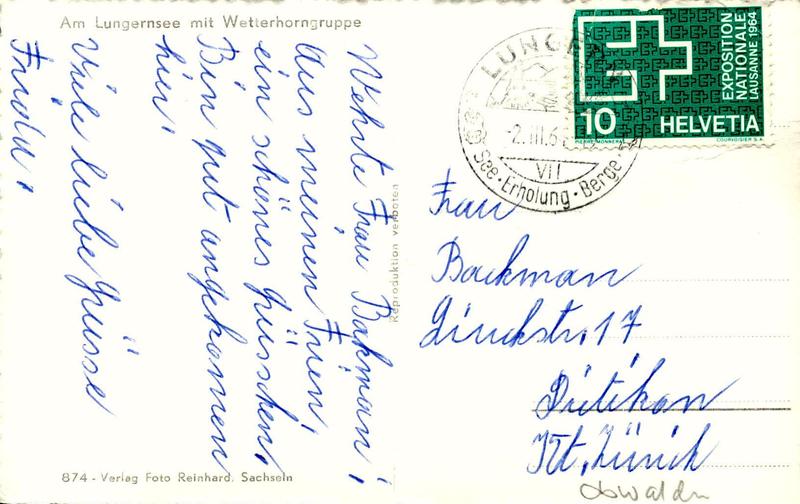 Am Lungernsee mit Wetterhorngruppe
Wehrte Frau Bakman!
Aus meinen Frien,
ein schönes grüsschen,
Bin gut angekommen
hier.
Viele liebe grüsse
Frida.
Reproduktion verboten
874 - Verlag Foto Reinhard, Sachseln
LUNGERN
-2.III.6
VII
See-Erholung-Berge
EXPOSITION
NATIONALE
LAUSANNE 1964
10 HELVETIA
PIERRE MONNERAT
COURVOISIER S.A.
Frau
Backman
17
Dietikon
Kt. Zürich
obwalden